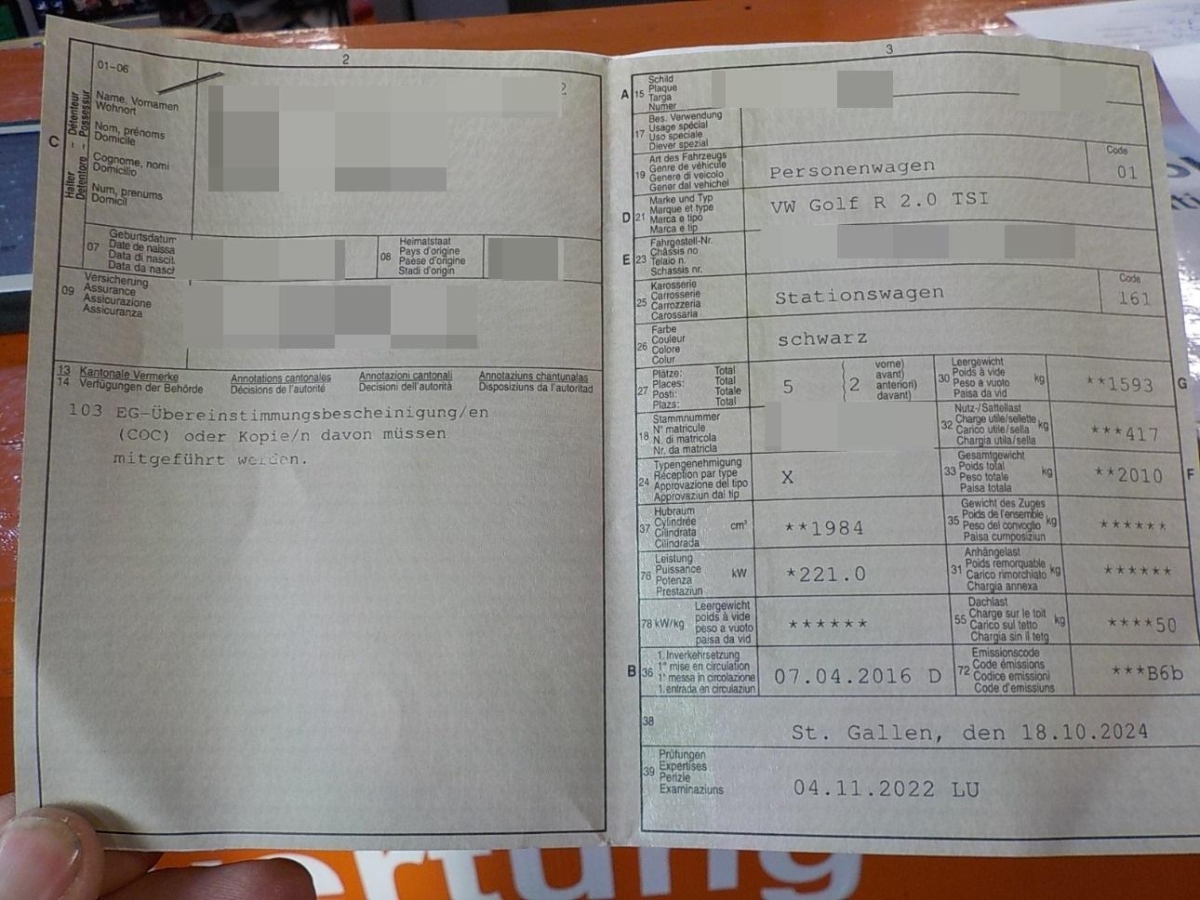 2
01-06
Halter - Détenteur
Detentore - Possessur
C
Name, Vornamen
Wohnort
Nom, prénoms
Domicile
Cognome, nomi
Domicilio
Num, prenums
Domicil
07
Geburtsdatum
Date de naissa
Data di nascit
Data da nasch
08
Heimatstaat
Pays d'origine
Paese d'origine
Stadi d'origin
09
Versicherung
Assurance
Assicurazione
Assicuranza
13 Kantonale Vermerke
14 Verfügungen der Behörde
Annotations cantonales
Décisions de l'autorité
Annotazioni cantonali
Decisioni dell'autorità
Annotaziuns chantunalas
Disposiziuns da l'autoritad
103 EG-Übereinstimmungsbescheinigung/en
(COC) oder Kopie/n davon müssen
mitgeführt werden.
3
A 15
Schild
Plaque
Targa
Numer
17
Bes. Verwendung
Usage spécial
Uso speciale
Diever spezial
19
Art des Fahrzeugs
Genre de véhicule
Genere di veicolo
Gener dal vehichel
Personenwagen
Code
01
D 21
Marke und Typ
Marque et type
Marca e tipo
Marca e tip
VW Golf R 2.0 TSI
E 23
Fahrgestell-Nr.
Châssis no
Telaio n.
Schassis nr.
25
Karosserie
Carrosserie
Carrozzeria
Carossaria
Stationswagen
Code
161
26
Farbe
Couleur
Colore
Colur
schwarz
27
Plätze: Total
Places: Total
Posti: Totale
Plazs: Total
5
2
vorne)
avant)
anteriori)
davant)
30
Leergewicht
Poids à vide
Peso a vuoto
Paisa da vid
kg
**1593
G
18
Stammnummer
N° matricule
N. di matricola
Nr. da matricla
32
Nutz-/Sattellast
Charge utile/sellette
Carico utile/sella
Chargia utila/sella
kg
***417
24
Typengenehmigung
Réception par type
Approvazione del tipo
Approvaziun dal tip
X
33
Gesamtgewicht
Poids total
Peso totale
Paisa totala
kg
**2010
F
37
Hubraum
Cylindrée
Cilindrata
Cilindrada
cm³
**1984
35
Gewicht des Zuges
Poids de l'ensemble
Peso del convoglio
Paisa cumposiziun
kg
******
76
Leistung
Puissance
Potenza
Prestaziun
kW
*221.0
31
Anhängelast
Poids remorquable
Carico rimorchiato
Chargia annexa
kg
******
78 kW/kg
Leergewicht
poids à vide
peso a vuoto
paisa da vid
******
55
Dachlast
Charge sur le toit
Carico sul tetto
Chargia sin il tetg
kg
****50
B 36
1. Inverkehrsetzung
1° mise en circulation
1ª messa in circolazione
1. entrada en circulaziun
07.04.2016 D
72
Emissionscode
Code émissions
Codice emissioni
Code d'emissiuns
***B6b
38
St. Gallen, den 18.10.2024
39
Prüfungen
Expertises
Perizie
Examinaziuns
04.11.2022 LU
ertung